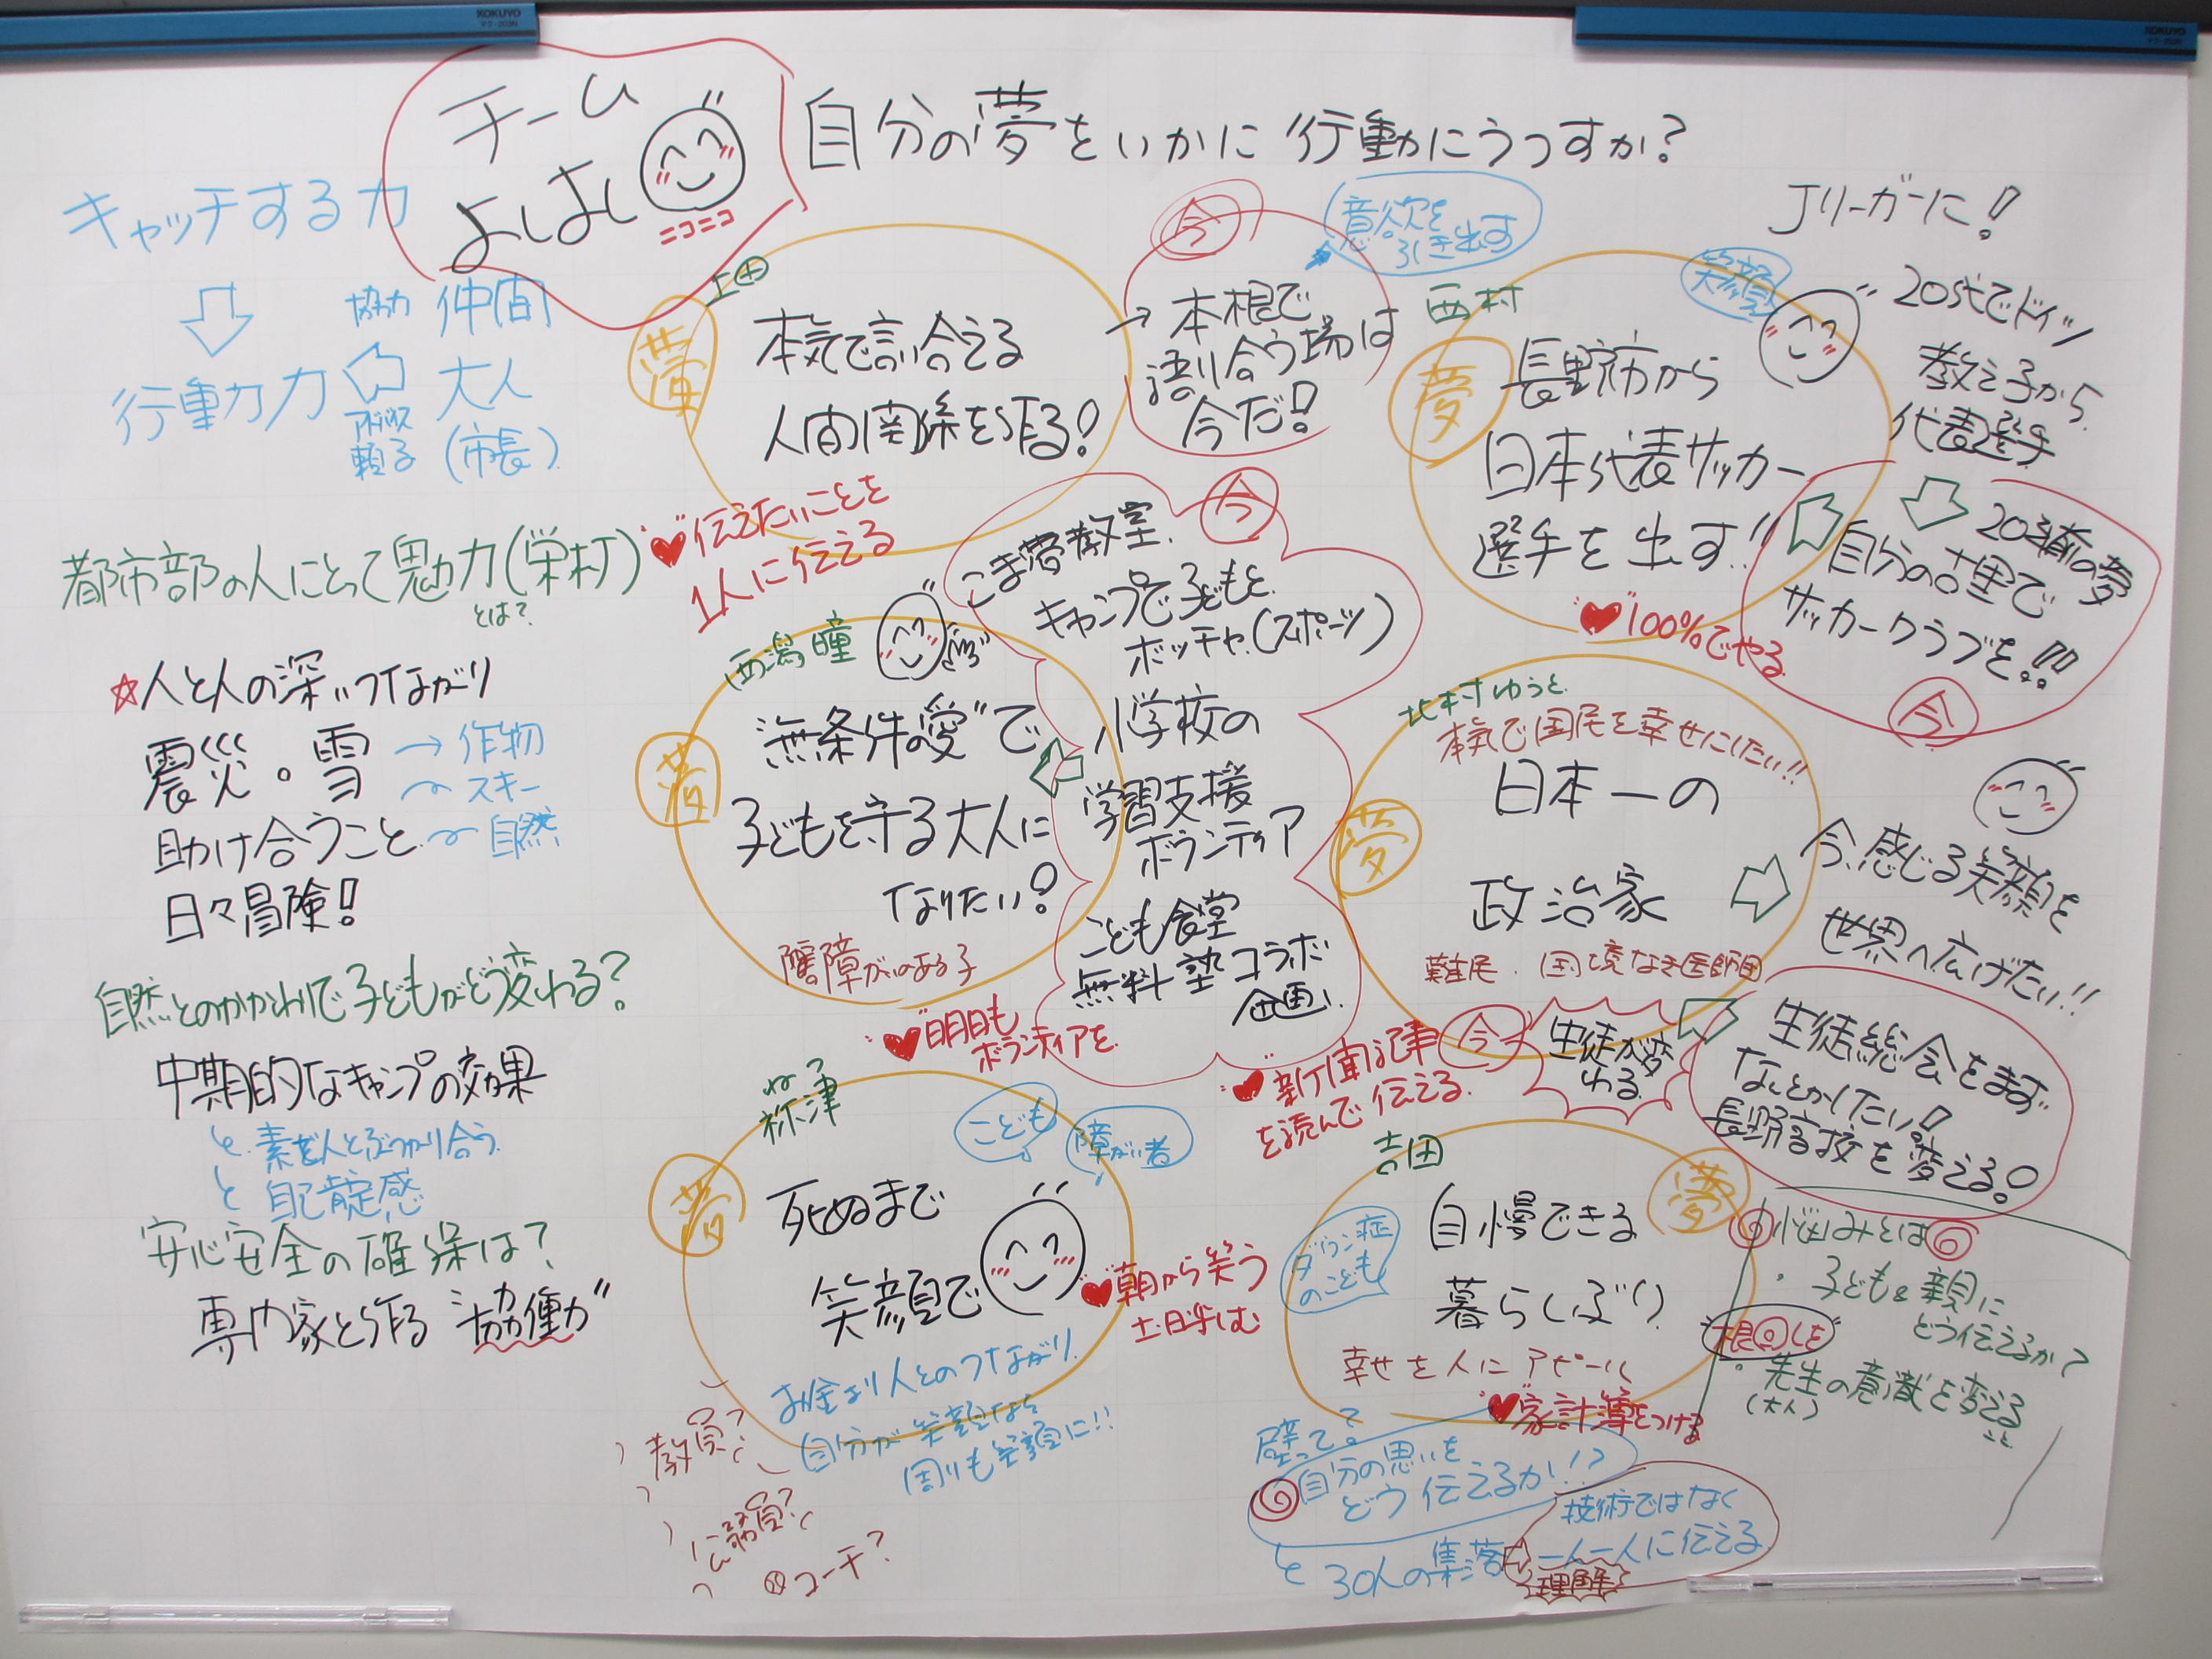 KOKUYO
KOKUYO
チーム
よしよし
ニコニコ
自分の夢をいかに行動にうつすか?
キャッチする力
行動力
協力 仲間
大人
頼る (市長)
都市部の人にとって魅力(栄村)
とは?
☆人と人の深いつながり
震災。雪 → 作物
スキー
助け合うこと 自然
日々冒険!
自然とのかかわりで子どもがどう変わる?
中期的なキャンプの効果
素で人とぶつかり合う
自己肯定感
安心安全の確保は?
専門家と作る "協働"
上田
夢
本気で言い合える
人間関係を作る!
♥伝えたいことを
1人に伝える
今
意欲を
引き出す
→本根で
語り合う場は
今だ!
西村
笑顔
夢
長野市から
日本代表サッカー
選手を出す!!
♥100%でやる
Jリーガーに!
20代でドイツ
教え子から
代表選手
20歳前の夢
自分の古里で
サッカークラブを!!
今
西潟瞳
夢
無条件の愛"で
子どもを守る大人に
なりたい!
障がいのある子
♥明日も
ボランティアを
今
こま夢教室
キャンプで子どもと
ボッチャ(スポーツ)
小学校の
学習支援
ボランティア
こども食堂
無料塾コラボ
企画!
北村ゆうと
本気で国民を幸せにしたい!!
夢
日本一の
政治家
難民・国境なき医師団
♥新聞記事
を読んで伝える
今
生徒が変
わる
今、感じる笑顔を
世界へ広げたい!!
生徒総会をまず
なんとかしたい!
長野高校を変える!
ねつ
祢津
こども
障がい者
夢
死ぬまで
笑顔で
お金より人とのつながり
自分が笑顔なら
周りも笑顔に!!
♥朝から笑う
土日呼む
教員?
公務員?
コーチ?
吉田
ダウン症
のこども
夢
自慢できる
暮らしぶり
幸せを人にアピール
♥家計簿をつける
悩みとは
・子どもと親に
どう伝えるか?
"根回しを"
・先生の意識を変える
(大人) こと
壁って?
自分の思いを
どう伝えるか!?
30人の集落
技術ではなく
一人一人に伝える
理解